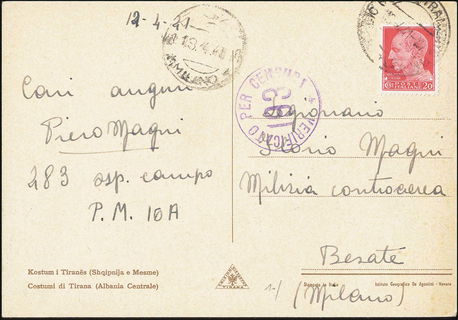 12-4-41
Cari auguri
Piero Magni
283 osp. campo
P. M. 10A
VERIFICATO PER CENSURA
193
20
Magni
Milizia controaerea
Besate
(Milano)
Kostum i Tiranës (Shqipnija e Mesme)
Costumi di Tirana (Albania Centrale)
TIRANA
Stampato in Italia
Istituto Geografico De Agostini - Novara